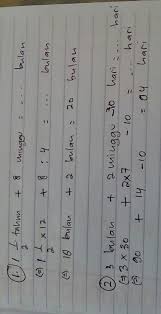 ① 1 1/2 tahun + 8 minggu = ... bulan
⇔ 1 1/2 × 12 + 8 : 4 = ... bulan
⇔ 18 bulan + 2 bulan = 20 bulan
② 3 bulan + 2 minggu - 10 hari = ... hari
⇔ 3 × 30 + 2×7 - 10 = ... hari
⇔ 90 + 14 - 10 = 94 hari